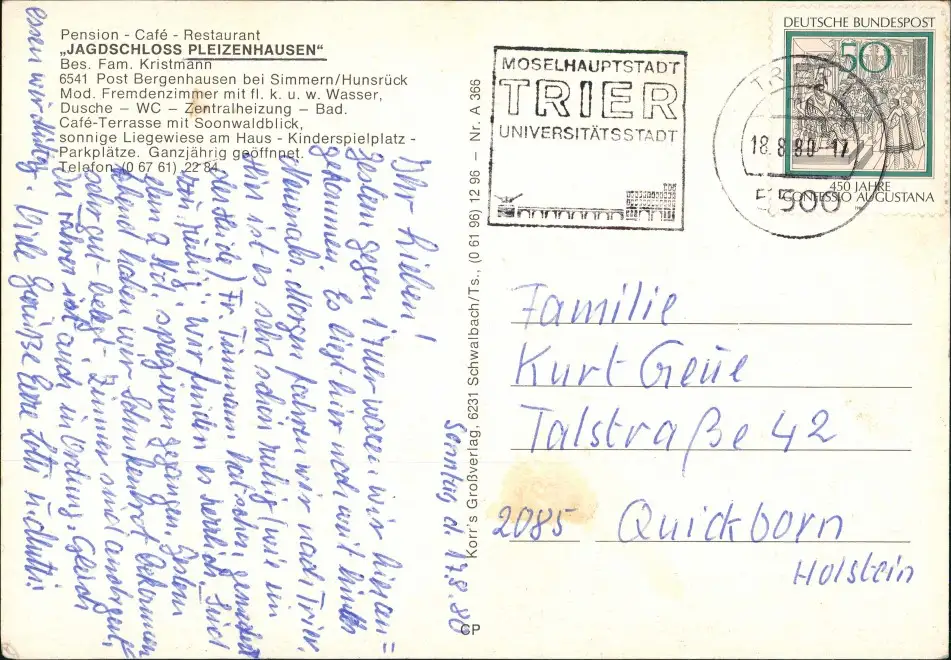 Pension - Café - Restaurant
„JAGDSCHLOSS PLEIZENHAUSEN“
Bes. Fam. Kristmann
6541 Post Bergenhausen bei Simmern/Hunsrück
Mod. Fremdenzimmer mit fl. k. u. w. Wasser,
Dusche – WC – Zentralheizung – Bad.
Café-Terrasse mit Soonwaldblick,
sonnige Liegewiese am Haus - Kinderspielplatz -
Parkplätze. Ganzjährig geöffnet.
Telefon (0 67 61) 22 84
Korr's Großverlag, 6231 Schwalbach/Ts., (0 61 96) 12 96 – Nr. A 366
CP
MOSELHAUPTSTADT
TRIER
UNIVERSITÄTSSTADT
TRIER
18.8.80-17
5500
DEUTSCHE BUNDESPOST
50
450 JAHRE
CONFESSIO AUGUSTANA
Sonntag d. 17.8.80
Ihr Lieben!
Gestern gegen 17 Uhr waren wir hier an=
gekommen. Es liegt hier noch weit hinter
Neumanns. Morgen fahren wir nach Trier.
Hier ist es sehr schön ruhig (wie im
Fr. Timmann hat schon
wir finden es herrlich. Sind
schon 2 Std. spazieren gegangen. Gestern
Abend haben wir Schinkenbrot bekommen
sehr gut belegt. Zimmer sind auch gut,
ist auch in Ordnung. Gleich
essen wir Mittag. Viele Grüße Eure
Familie
Kurt Geue
Talstraße 42
2085 Quickborn
Holstein